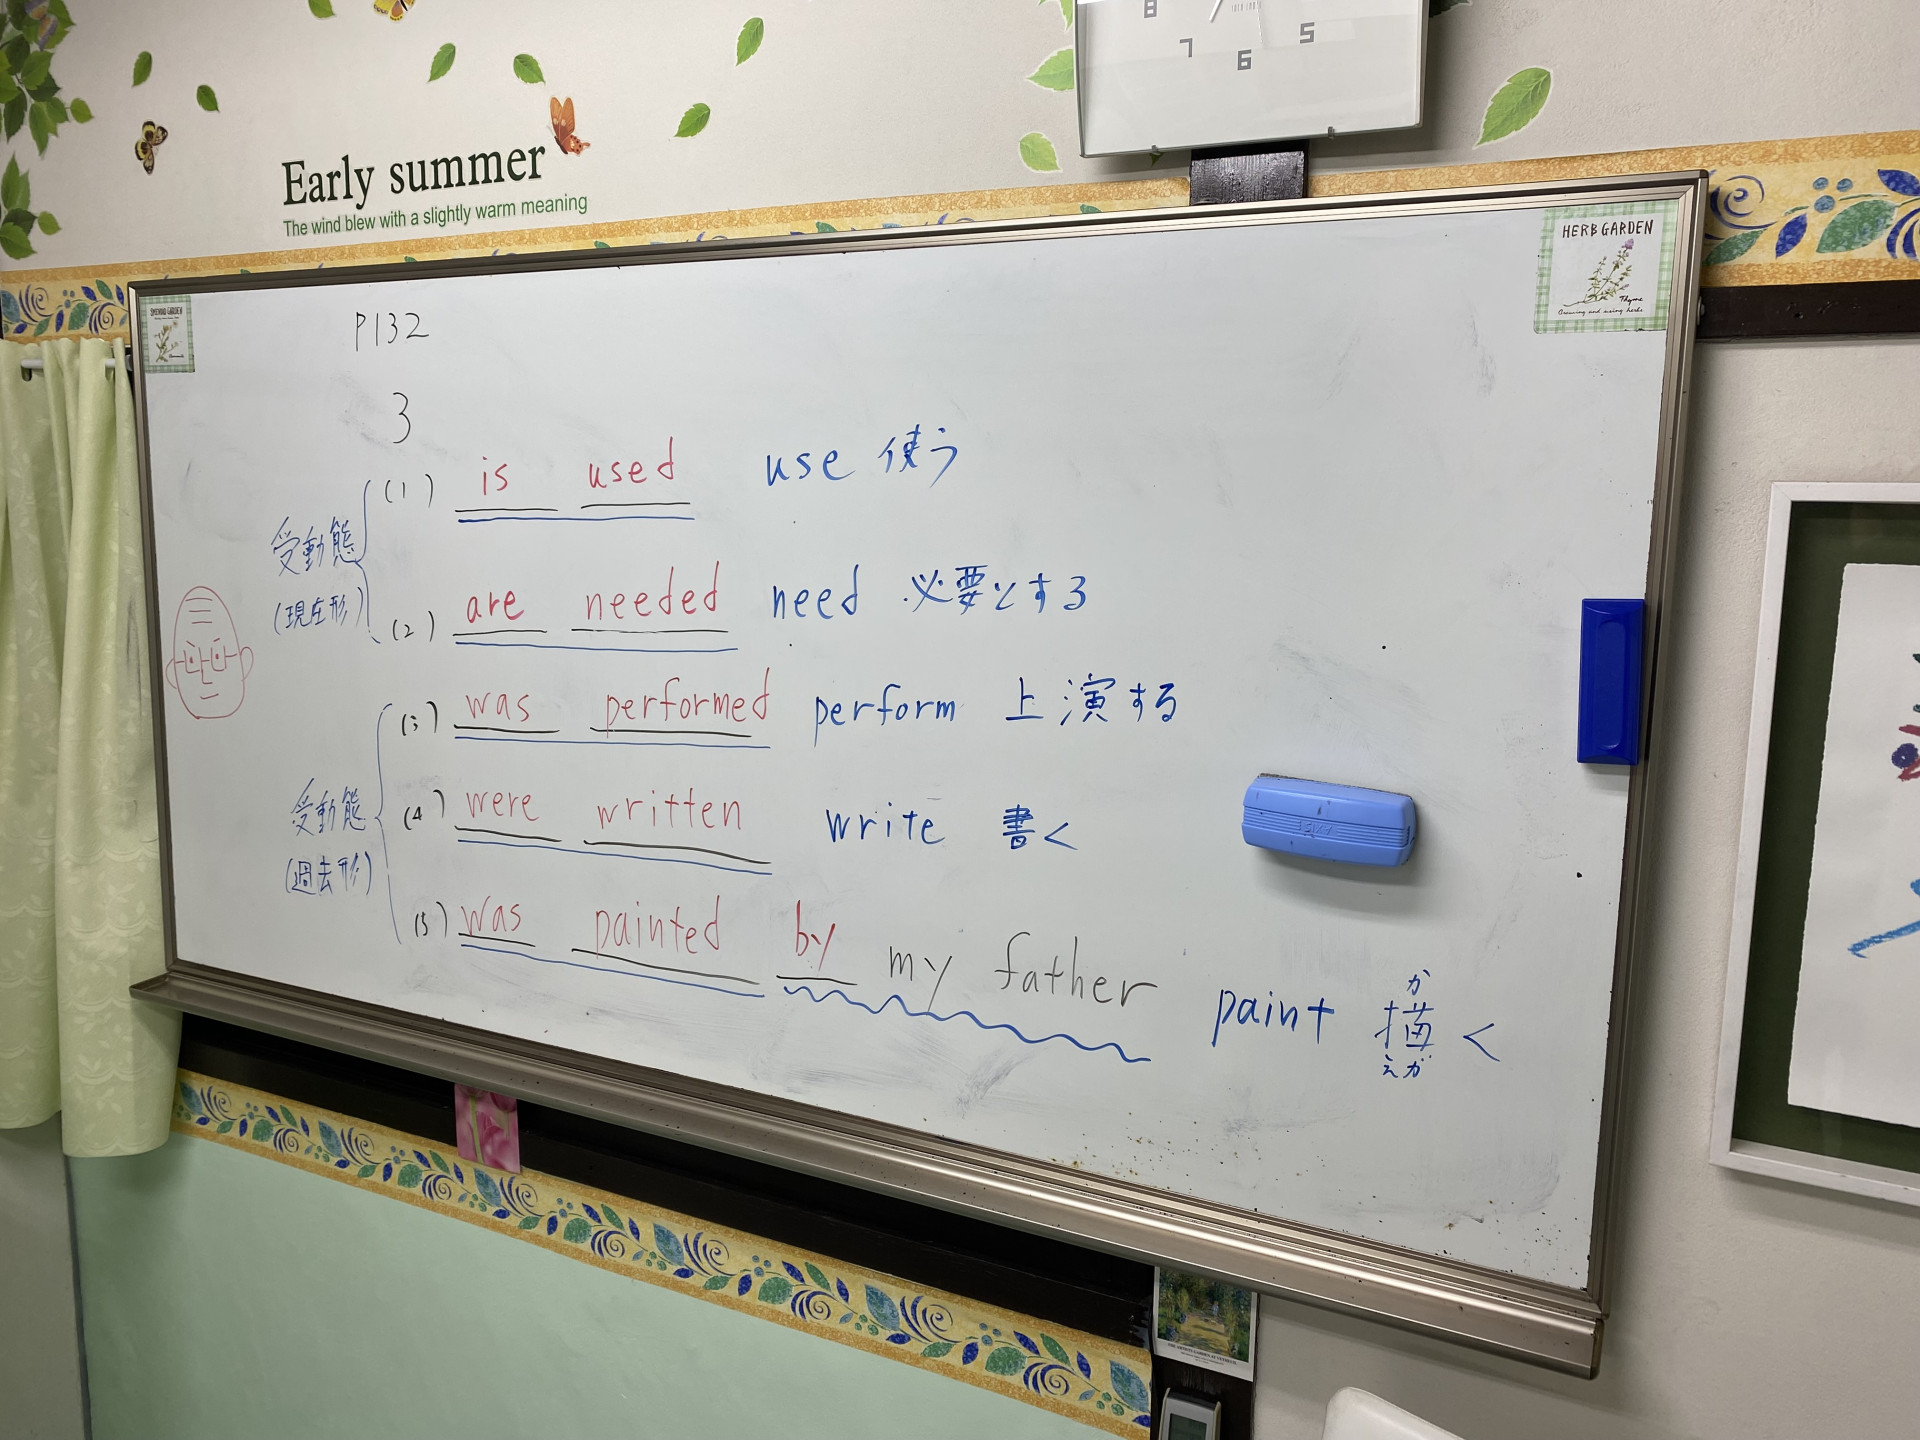 8 7 6 5
Early summer
The wind blew with a slightly warm meaning
HERB GARDEN
Thyme
Growing and using herbs
P132
3
(1) is used use 使う
受動態
(現在形)
(2) are needed need 必要とする
(3) was performed perform 上演する
受動態
(過去形)
(4) were written write 書く
(5) was painted by my father paint 描く
か
えが